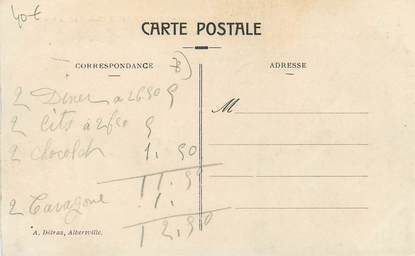 40€
CARTE POSTALE
CORRESPONDANCE
ADRESSE
2 Diner a 2f.50 5
2 Lits à 2f50 5
2 chocolat 1.50
11.50
M
2 1.
12.50
A. Détraz, Albertville.